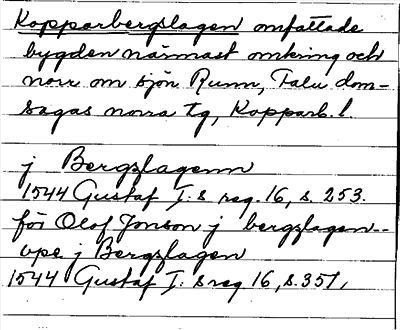 Kopparbergslagen omfattade
bygden närmast omkring och
norr om sjön Runn, Falu dom-
sagas norra tg, Kopparb. l.
j Bergslagenn
1544 Gustaf I:s reg. 16, s. 253.
för Olof Jonson j bergslagen--
ope j Bergslagen
1544 Gustaf I:s reg 16, s. 351,